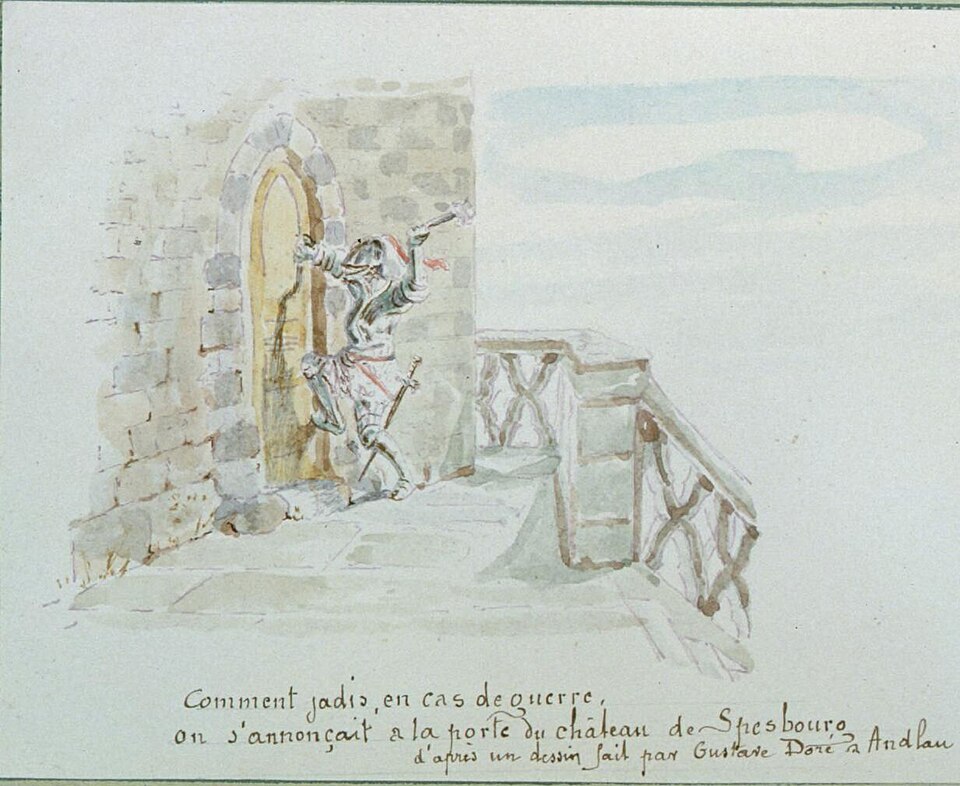 Comment jadis, en cas de guerre,
on s'annonçait a la porte du château de Spesbourg
d'après un dessin fait par Gustave Doré a Andlau